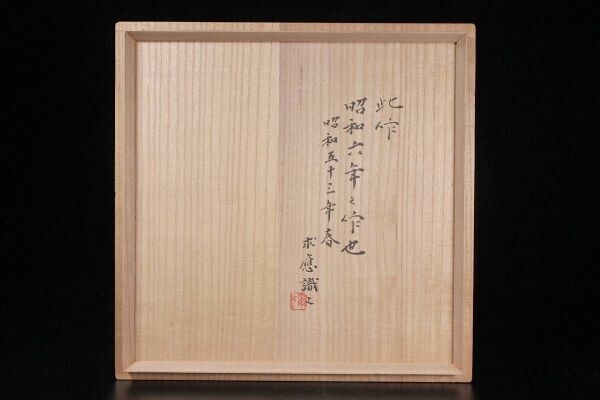 此作
昭和六年之作也
昭和五十三年春
求應識之